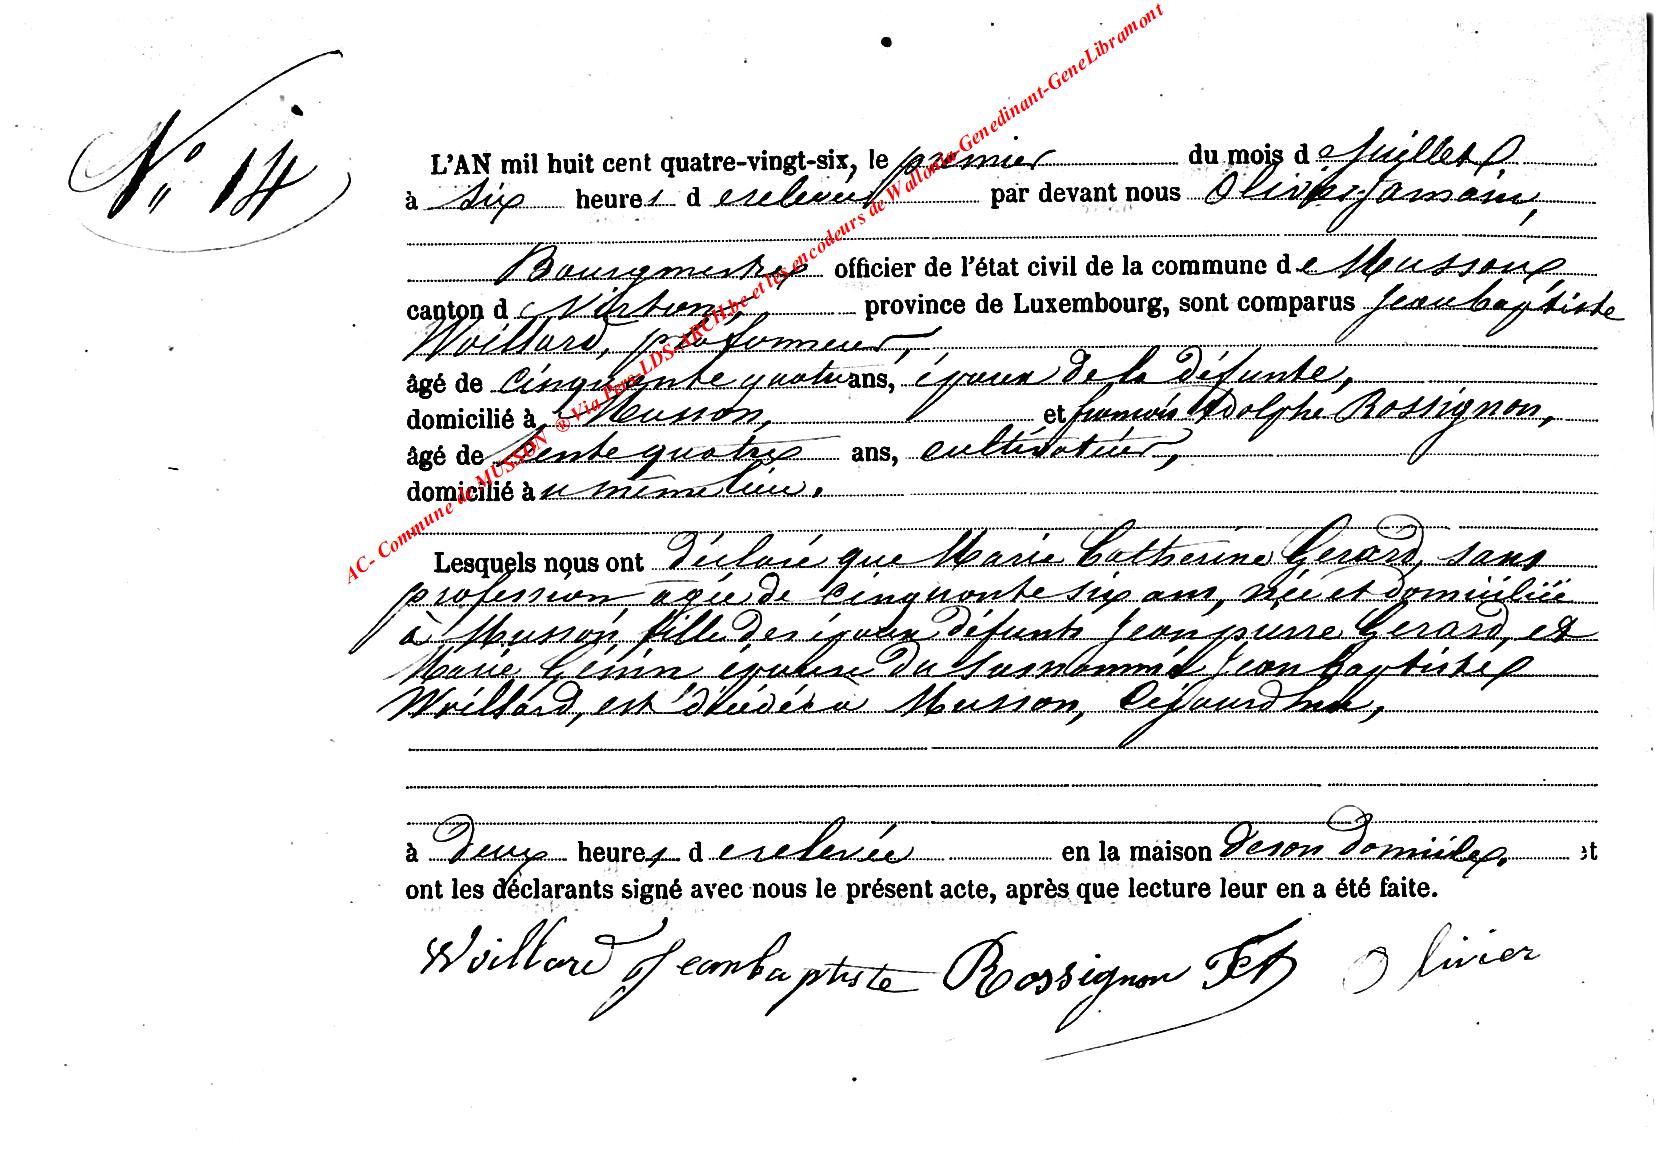 N° 14
L'AN mil huit cent quatre-vingt-six, le premier du mois de Juillet
à six heures de relevée par devant nous Olivier Jamain,
Bourgmestre officier de l'état civil de la commune de Musson
canton de Virton, province de Luxembourg, sont comparus Jean baptiste
Woillard, platonneur,
âgé de cinquante quatre ans, époux de la défunte,
domicilié à Musson, et françois Adolphe Rossignon,
âgé de trente quatre ans, cultivateur,
domicilié au même lieu.
Lesquels nous ont déclaré que Marie Catherine Gerard, sans
profession agée de cinquante six ans, née et domiciliée
à Musson, fille des époux défunts Jean pierre Gerard, et
Marie Genin épouse du susnommé Jean baptiste
Woillard, est décédée à Musson, Cejourdhui,
à deux heures de relevée en la maison de son domicile. et
ont les déclarants signé avec nous le présent acte, après que lecture leur en a été faite.
Woillard Jeanbaptiste Rossignon Olivier
AC- Commune de MUSSON ® Via Pers-LDS-ARCH.be et les encodeurs de Wallonia-Genedinant-GeneLibramont